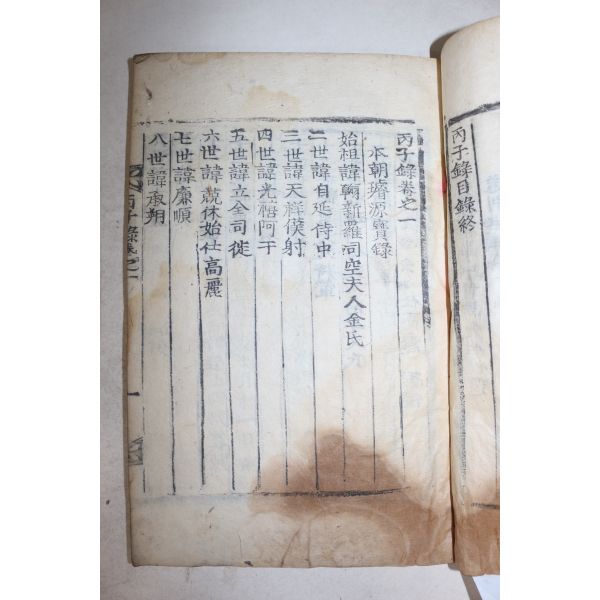 丙子錄目錄終
丙子錄卷之一
本朝璿源寶錄
始祖諱翰新羅司空夫人金氏
二世諱自延侍中
三世諱天祥僕射
四世諱光禧阿干
五世諱立全司徒
六世諱兢休始仕高麗
七世諱廉順
八世諱承朔
丙子錄卷之一
一